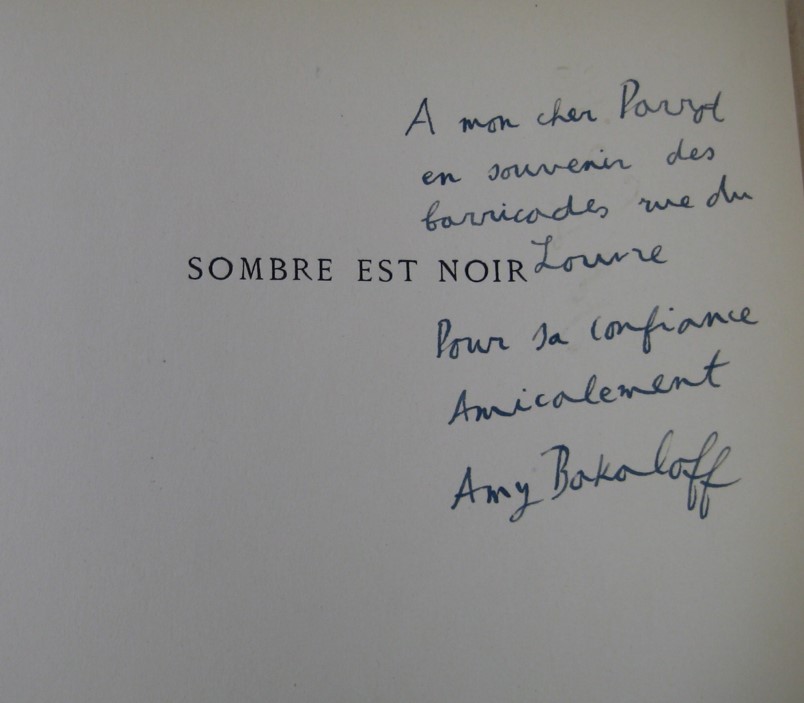 A mon cher
en souvenir des
barricades rue du
Louvre
SOMBRE EST NOIR
Pour sa confiance
Amicalement
Amy Bakaloff